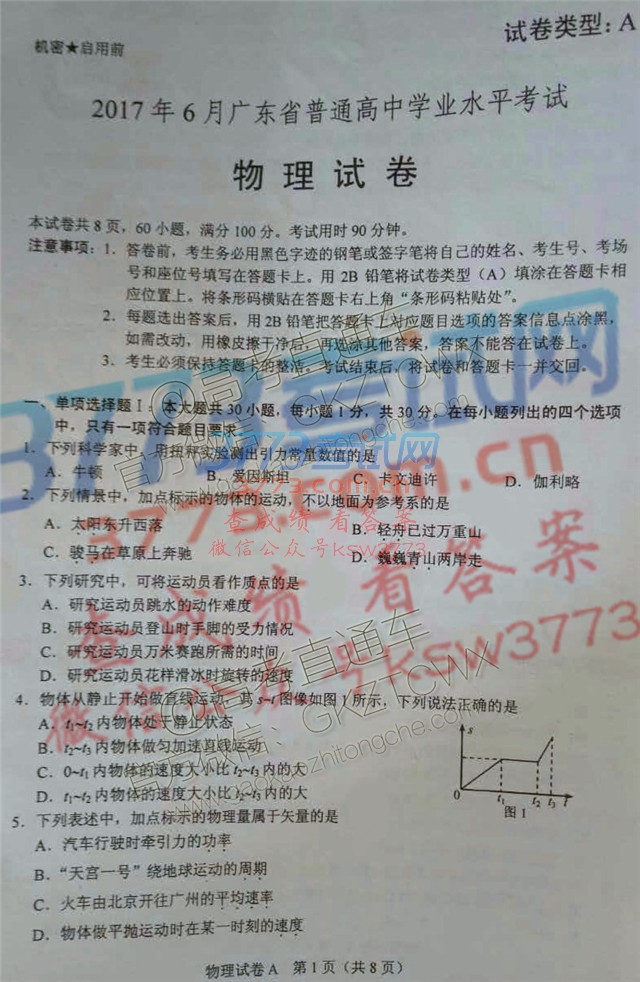 机密★启用前
试卷类型：A
2017年6月广东省普通高中学业水平考试
物理试卷
本试卷共8页，60小题，满分100分。考试用时90分钟。
注意事项：1. 答卷前，考生务必用黑色字迹的钢笔或签字笔将自己的姓名、考生号、考场
号和座位号填写在答题卡上。用2B铅笔将试卷类型（A）填涂在答题卡相
应位置上。将条形码横贴在答题卡右上角“条形码粘贴处”。
2. 每题选出答案后，用2B铅笔把答题卡上对应题目选项的答案信息点涂黑，
如需改动，用橡皮擦干净后，再选涂其他答案，答案不能答在试卷上。
3. 考生必须保持答题卡的整洁。考试结束后，将试卷和答题卡一并交回。
一、单项选择题Ⅰ：本大题共30小题，每小题1分，共30分。在每小题列出的四个选项
中，只有一项符合题目要求。
1. 下列科学家中，用扭秤实验测出引力常量数值的是
A. 牛顿 B. 爱因斯坦 C. 卡文迪许 D. 伽利略
2. 下列情景中，加点标示的物体的运动，不以地面为参考系的是
A. 太阳东升西落 B. 轻舟已过万重山
C. 骏马在草原上奔驰 D. 巍巍青山两岸走
3. 下列研究中，可将运动员看作质点的是
A. 研究运动员跳水的动作难度
B. 研究运动员登山时手脚的受力情况
C. 研究运动员万米赛跑所需的时间
D. 研究运动员花样滑冰时旋转的速度
4. 物体从静止开始做直线运动，其s~t图像如图1所示，下列说法正确的是
A. t₁~t₂内物体处于静止状态
B. t₂~t₃内物体做匀加速直线运动
C. 0~t₁内物体的速度大小比t₂~t₃内的大
D. t₁~t₂内物体的速度大小比t₂~t₃内的大
s
0 t₁ t₂ t₃ t
图1
5. 下列表述中，加点标示的物理量属于矢量的是
A. 汽车行驶时牵引力的功率
B. “天宫一号”绕地球运动的周期
C. 火车由北京开往广州的平均速率
D. 物体做平抛运动时在某一时刻的速度
物理试卷A 第1页（共8页）
3773考试网
3773.com.cn
查成绩 看答案
微信公众号ksw3773
3773考试网
3773.com.cn
查成绩 看答案
微信公众号ksw3773
@高考直通车
官方微信：GKZTCWX
gaokaozhitongche.com
@高考直通车
官方微信：GKZTCWX
gaokaozhitongche.com